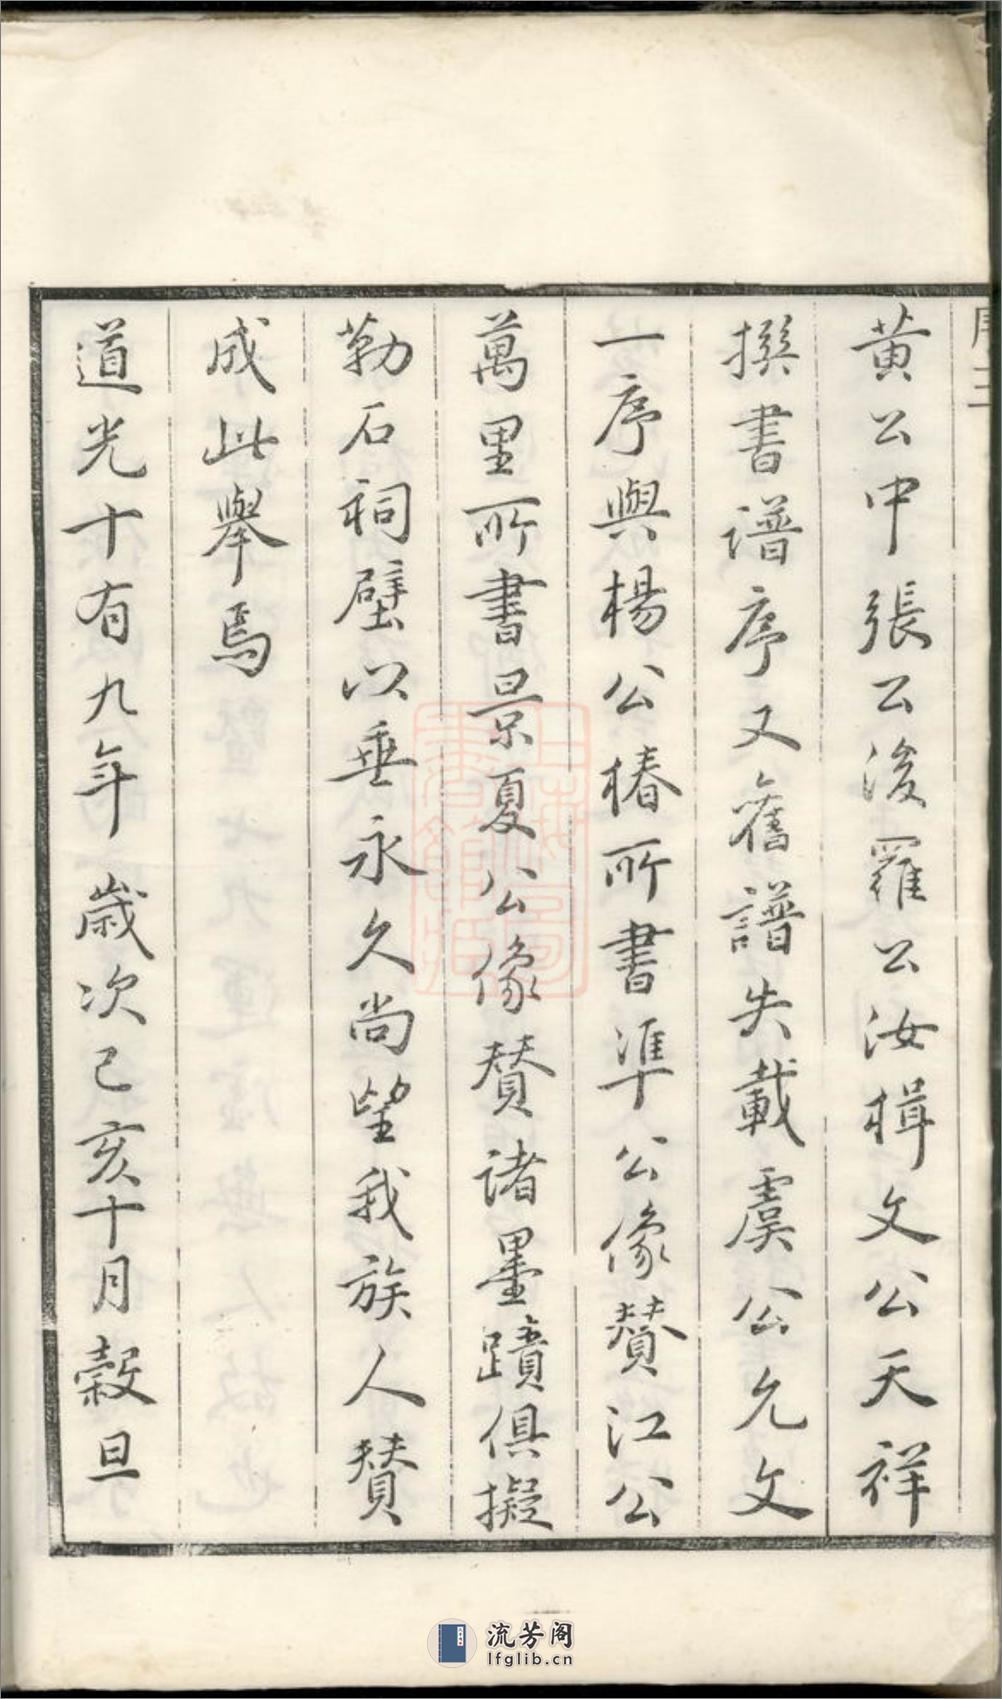 黄公中張公浚羅公汝楫文公天祥
撰書譜序又舊譜失載虞公允文
一序與楊公椿所書準公像賛江公
萬里所書景夏公像賛諸墨蹟俱擬
勒石祠壁以垂永久尚望我族人賛
成此舉焉
道光十有九年歲次己亥十月穀旦
上海圖書館藏
流芳阁
lfglib.cn